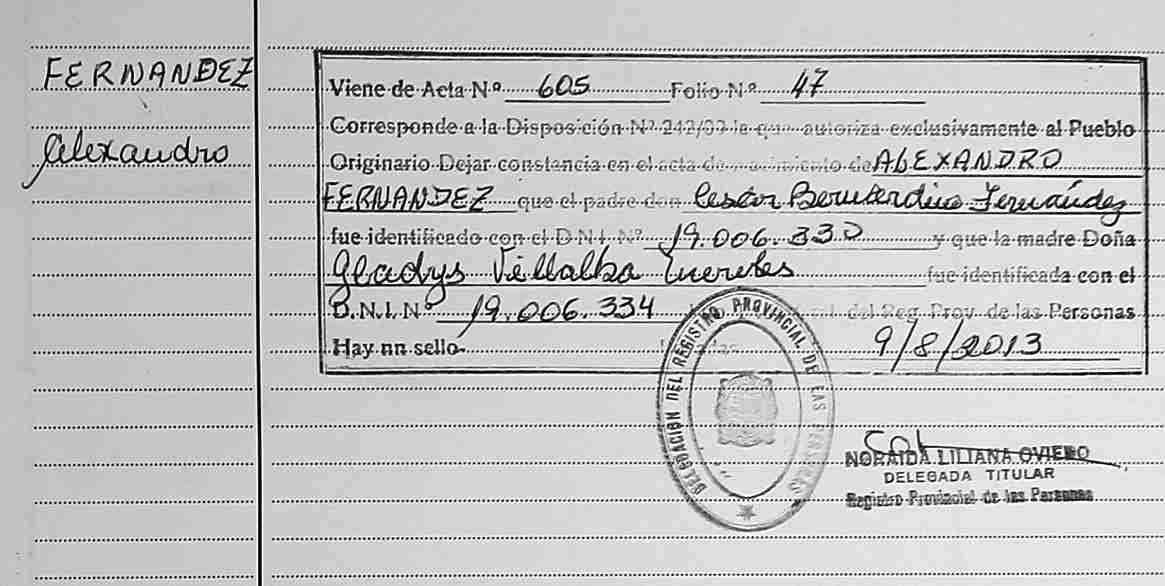 FERNANDEZ
Alexandro
Viene de Acta Nº 605 Folio Nº 47
Corresponde a la Disposición Nº 242/09 la que autoriza exclusivamente al Pueblo
Originario Dejar constancia en el acta de nacimiento de ALEXANDRO
FERNANDEZ que el padre don Fernández
fue identificado con el D.N.I. Nº 19.006.330 y que la madre Doña
Gladys Villalba fue identificada con el
D.N.I. Nº 19.006.334 del Reg. Prov. de las Personas
Hay nn sello- 9/8/2013
DELEGACION DEL REGISTRO PROVINCIAL DE LAS PERSONAS
NORAIDA LILIANA OVIEDO
DELEGADA TITULAR
Registro Provincial de las Personas